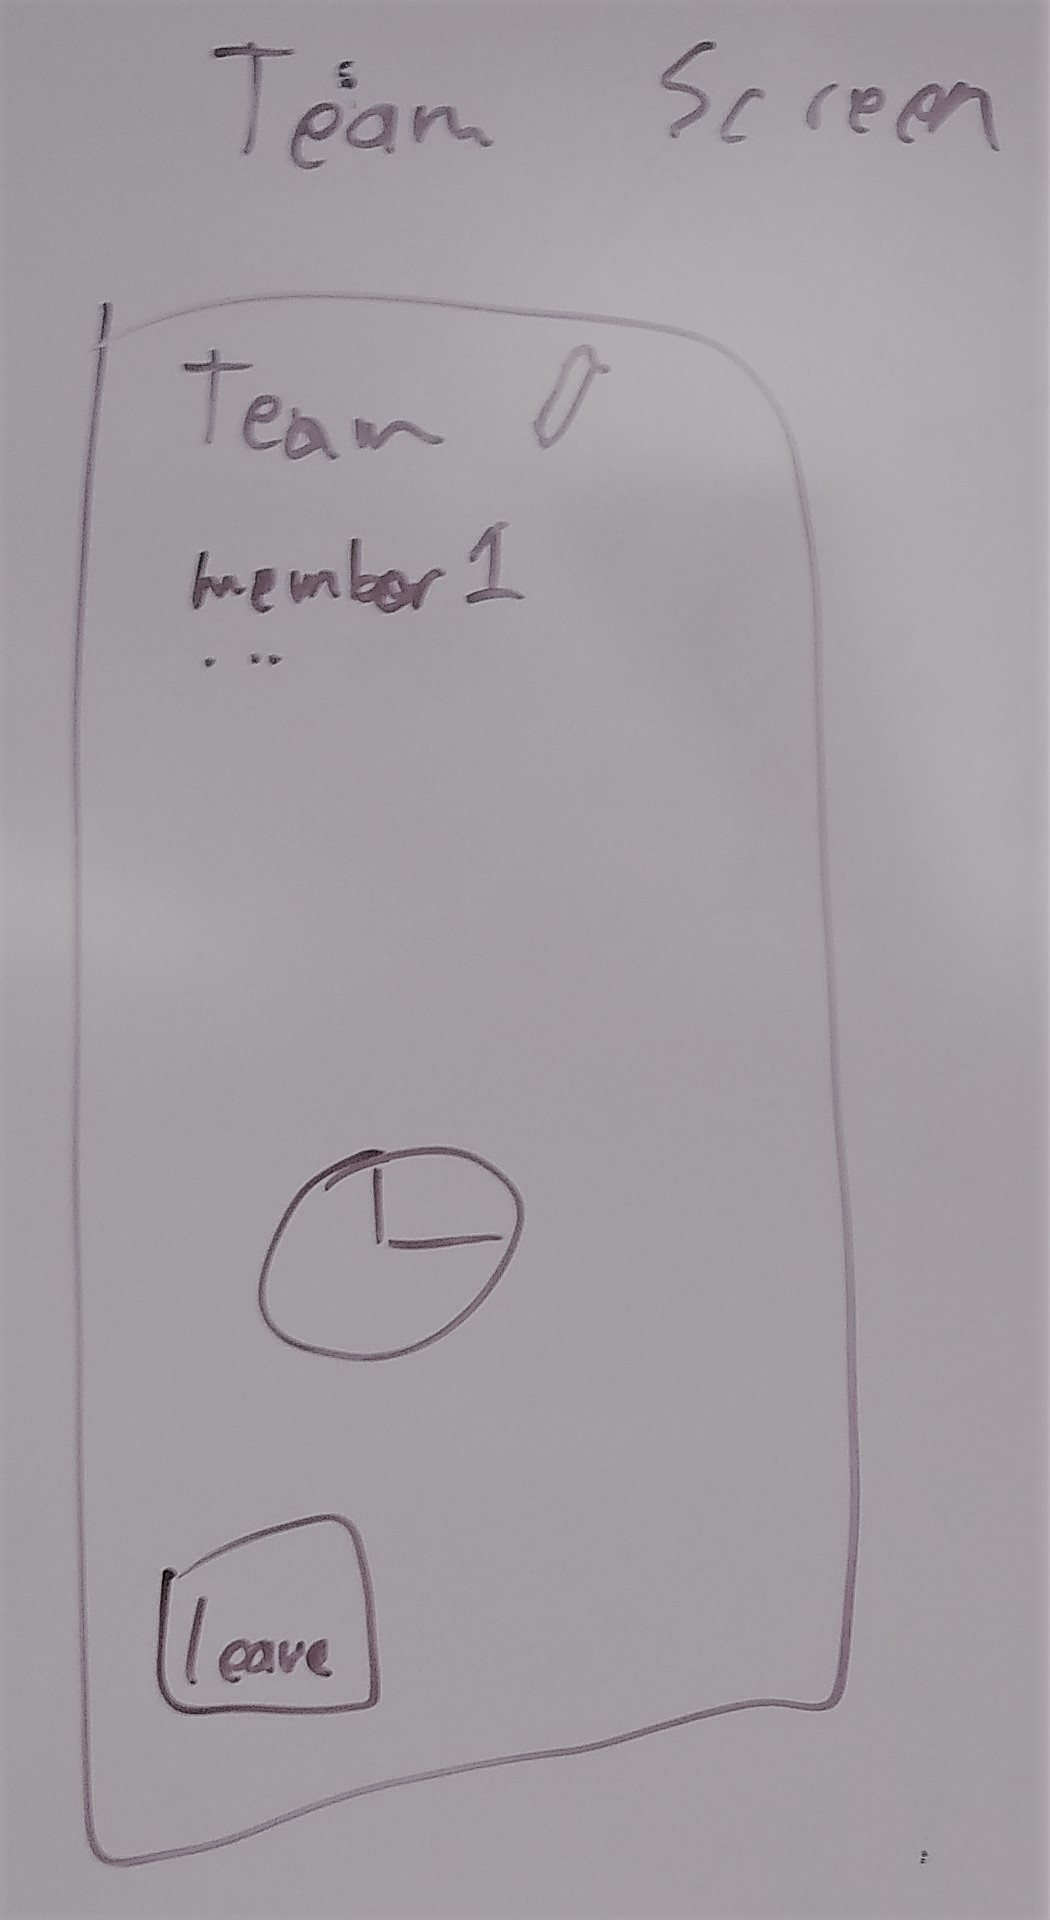 Team Screen
Team
member 1
...
leave